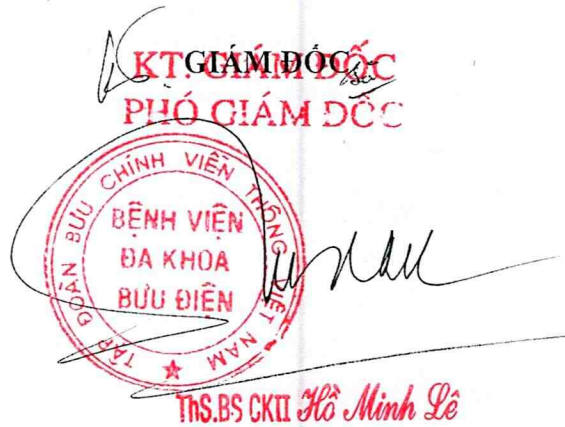 GIÁM ĐỐC
KT. GIÁM ĐỐC
PHÓ GIÁM ĐỐC
TẬP ĐOÀN BƯU CHÍNH VIỄN THÔNG VIỆT NAM
BỆNH VIỆN
ĐA KHOA
BƯU ĐIỆN
ThS.BS CKII Hồ Minh Lê